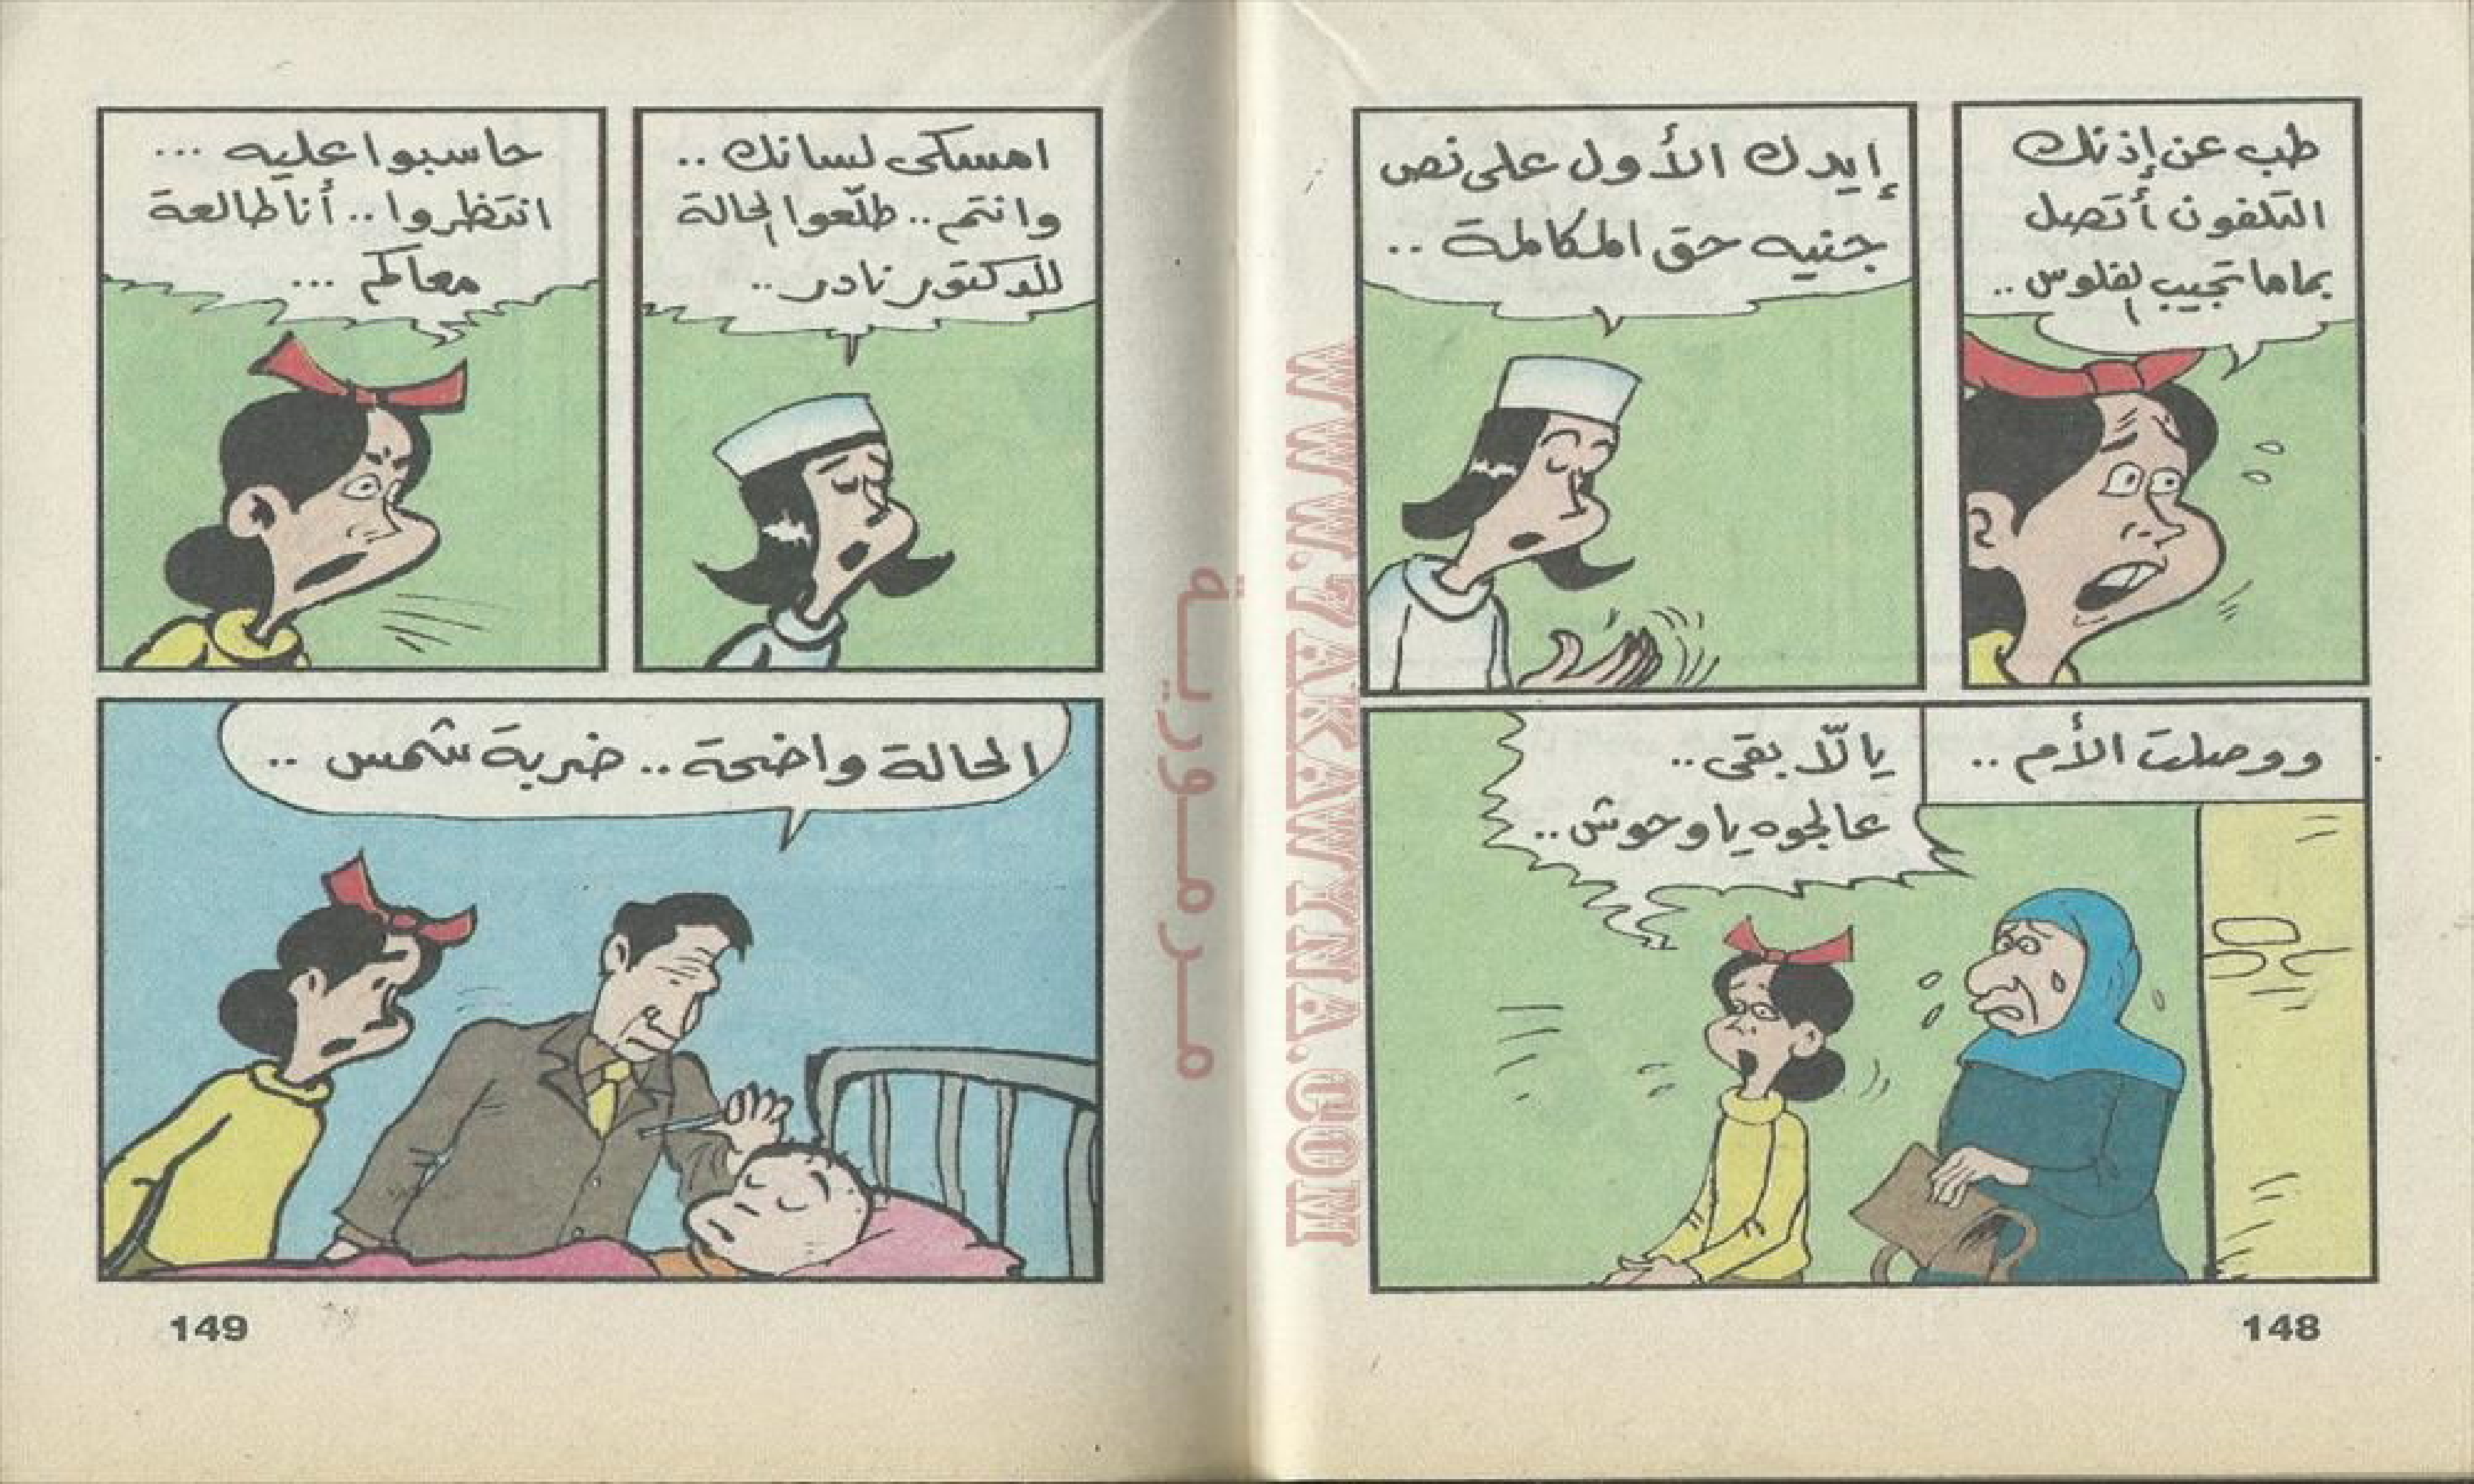 طب عن إذنك
التلفون أتصل
بماما تجيب لفلوس ..
إيدك الأول على نص
جنيه حق المكالمة ..
ووصلت الأم ..
يالّا بقى ..
عالجوه يا وحوش ..
امسكى لسانك ..
وانتم .. طلّعوا لحالة
للدكتور نادر ..
حاسبوا عليه ...
انتظروا .. أنا طالعة
معاكم ...
الحالة واضحة .. ضربة شمس ..
148
149
WWW.7AKAWYNA.COM
مرمورية